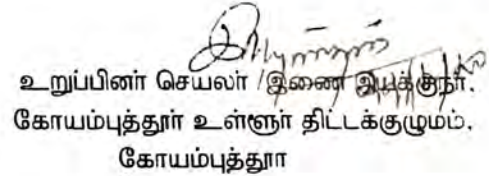 உறுப்பினர் செயலர் /இணை இயக்குநர்,
கோயம்புத்தூர் உள்ளூர் திட்டக்குழுமம்,
கோயம்புத்தூா